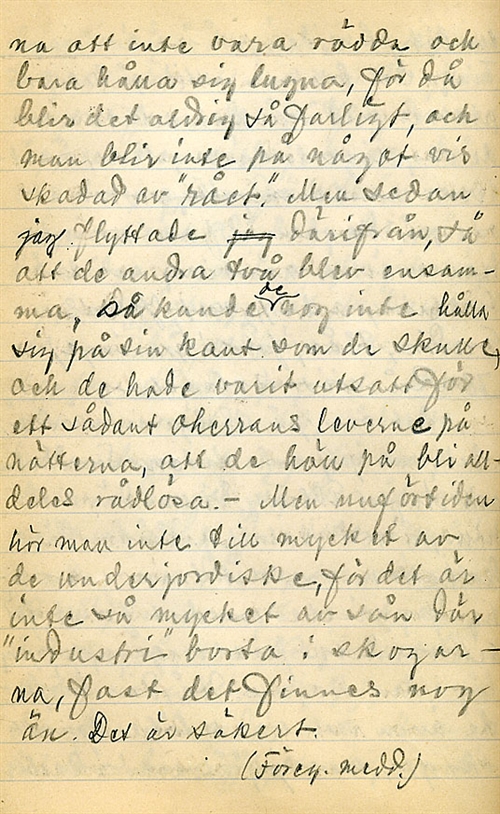 na att inte vara rädda och
bara hålla sig lugna, för då
blir det aldrig så farligt, och
man blir inte på något vis
skadad av "rået." Men sedan
jag flyttade jag därifrån, så
att de andra två blev ensam-
ma, så kunde de nog inte hålla
sig på sin kant som de skulle,
och de hade varit utsatt för
ett sådant oherrans leverne på
nätterna, att de höll på bli all-
deles rådlösa. - Men nuförtiden
hör man inte till mycket av
de underjordiske, för det är
inte så mycket av sån där
"industri" borta i skogar-
na, fast det finnes nog
än. Det är säkert.
(Föreg. medd.)